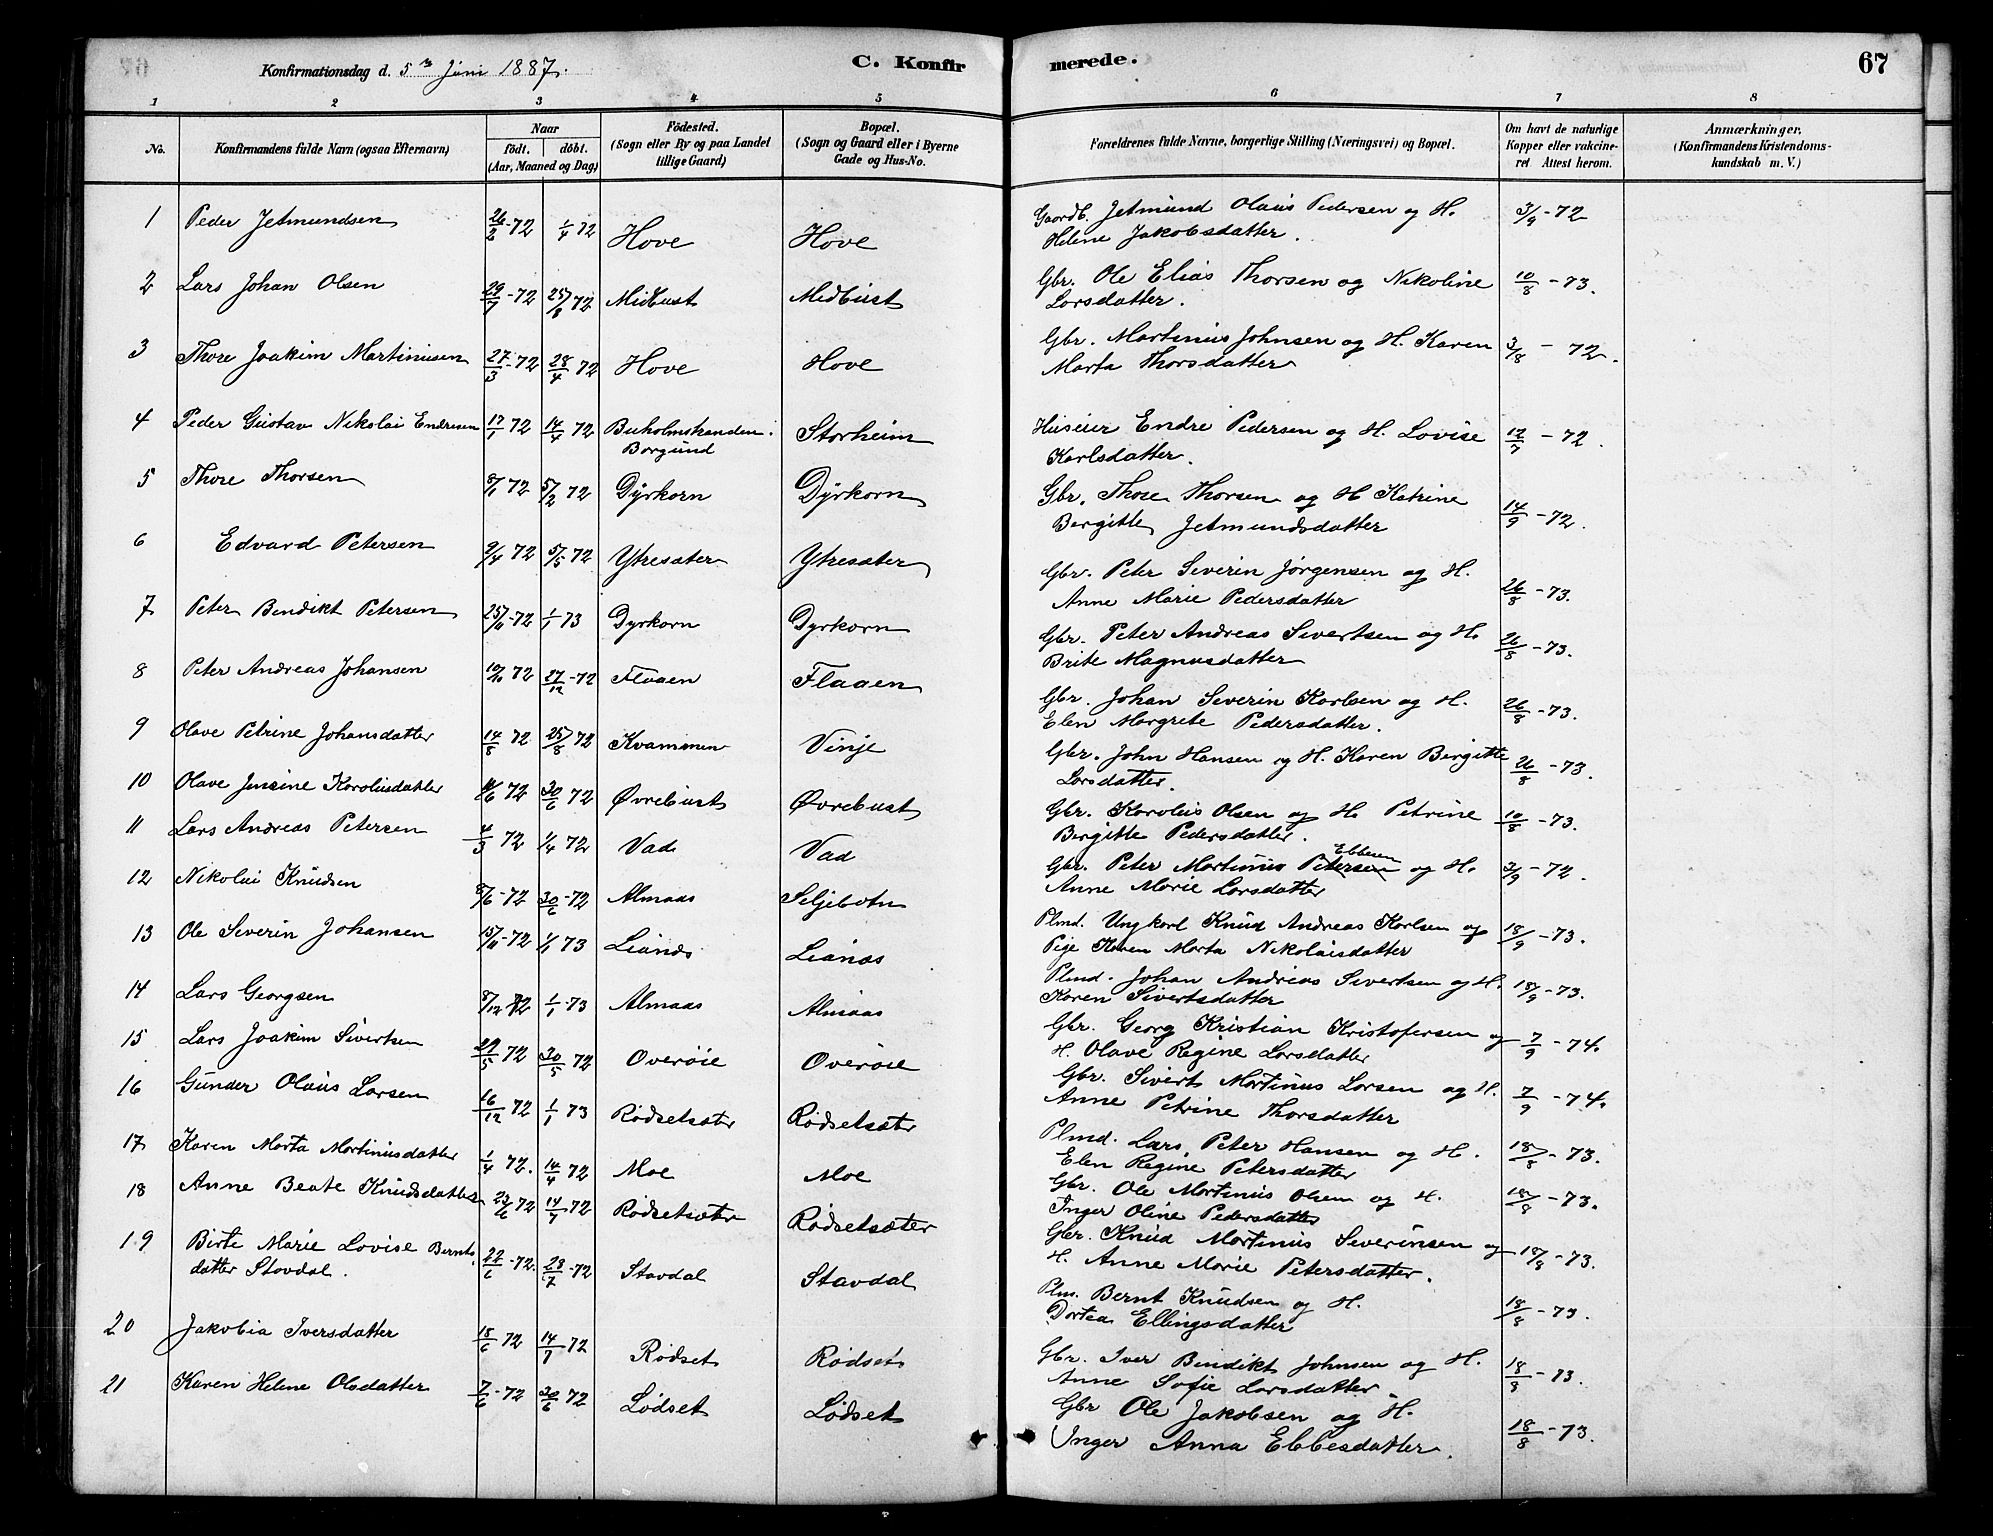 Konfirmationsdag d. 5te Juni 1887.
C. Konfirmerede.
67
1 2 3 4 5 6 7 8
No.
Konfirmandens fulde Navn (ogsaa Efternavn)
Naar
født. døbt.
(Aar, Maaned og Dag)
Fødested.
(Sogn eller By og paa Landet
tillige Gaard)
Bopæl.
(Sogn og Gaard eller i Byerne
Gade og Hus-No.
Forældrenes fulde Navne, borgerlige Stilling (Næringsvei) og Bopæl.
Om havt de naturlige
Kopper eller vakcine-
ret Attest herom.
Anmærkninger,
(Konfirmandens Kristendoms-
kundskab m. V.)
1 Peder Jetmundsen 26/2-72 1/4 72 Hove Hove Gaardb. Jetmund Olaus Pedersen og H. 3/9-72
Helene Jakobsdatter.
2 Lars Johan Olsen 29/7-72 25/8 72 Midbust Midbust Gbr. Ole Elias Thorsen og Nikoline 10/8-73.
Larsdatter.
3 Thore Joakim Martinusen 27/3-72 28/4 72 Hove Hove Gbr. Martinus Johnsen og H. Karen 3/8-72.
Marta Thorsdatter
4 Peder Gustav Nikolai Endresen 17/1 72 14/4 72 Buholmstranden. Storheim Huseier Endre Pedersen og H. Lovise 12/7-72.
Borgund Karlsdatter.
5 Thore Thorsen 8/1 72 5/2 72 Dyrkorn Dyrkorn Gbr. Thore Thorsen og H Katrine 14/9-72.
Bergitte Jetmundsdatter
6 Edvard Petersen 9/4 72 5/5 72 Ytresæter Ytresæter Gbr. Peter Severin Jørgensen og H. 26/8-73.
Anne Marie Pedersdatter
7 Peter Bendikt Petersen 25/11-72 1/1 73 Dyrkorn Dyrkorn Gbr. Peter Andreas Sivertsen og H. 26/8-73.
Brite Magnusdatter
8 Peter Andreas Johansen 10/10 72 27/12-72 Flaaen Flaaen Gbr. Johan Severin Karlsen og H. 26/8-73.
Elen Margrete Pedersdatter.
9 Olave Petrine Johansdatter 14/8 72 25/8 72 Kvammen Vinje Gbr. John Hansen og H. Karen Birgitte 26/8-73.
Larsdatter.
10 Olave Jensine Karolusdatter 11/6 72 30/6 72 Øvrebust Øvrebust Gbr. Karolus Olsen og H. Petrine 10/8-73.
Bergitte Pedersdatter.
11 Lars Andreas Petersen 4/3 72 1/4 72 Vad Vad Gbr. Peter Martinus Petersen Ebbesen og H. 3/9-72.
Anne Marie Larsdatter
12 Nikolai Knudsen 8/6-72 30/6-72 Almaas Seljebotn Plmd. Ungkarl Knud Andreas Karlsen og 18/9-73.
Pige Karen Marta Nikolaisdatter
13 Ole Severin Johansen 15/11-72 1/1 73 Lianes Lianes Plmd. Johan Andreas Sivertsen og H. 18/9-73.
Karen Sivertsdatter
14 Lars Georgsen 8/12 72 1/1-73 Almaas Almaas Gbr. Georg Kristian Kristofersen og 7/9-74.
H. Olave Regine Larsdatter
15 Lars Joakim Sivertsen 29/5 72 30/5 72 Overøie Overøie Gbr. Sivert Martinus Larsen og H. 7/9-74.
Anne Petrine Thorsdatter
16 Gunder Olaus Larsen 16/12 72 1/1 73 Rødsetsæter Rødsetsæter Plmd. Lars Peter Hansen og H. 18/8-73.
Elen Regine Petersdatter
17 Karen Marta Martinusdatter 1/4 72. 14/4 72 Moe Moe Gbr. Ole Martinus Olsen og H. 18/8-73.
Inger Oline Pedersdatter
18 Anne Beate Knudsdatter 23/6 72 14/7 72 Rødsetsæter Rødsetsæter Gbr. Knud Martinus Severinsen og 18/8-73.
H. Anne Marie Petersdatter.
19 Birte Marie Lovise Bernts- 22/6-72. 28/7-72 Stavdal Stavdal Plm. Bernt Knudsen og H. 18/8-73.
datter Stavdal. Dortea Ellingsdatter
20 Jakobia Iversdatter 18/6 72 14/7 72 Rødset Rødset Gbr. Iver Bendikt Johnsen og H. 18/8-73.
Anne Sofie Larsdatter
21 Karen Helene Olsdatter 7/6-72 30/6 72 Lødset Lødset Gbr Ole Jakobsen og H. 18/8-73.
Inger Anna Ebbesdatter.